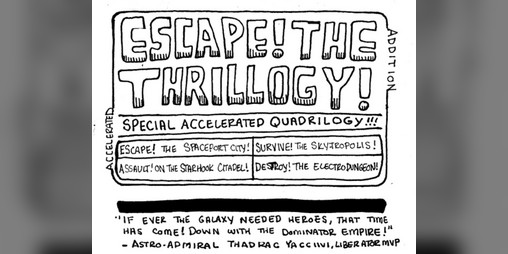 ESCAPE! THE
THRILLOGY!
ACCELERATED
ADDITION
SPECIAL ACCELERATED QUADRILOGY!!!
ESCAPE! THE SPACEPORT CITY!
SURVIVE! THE SKYTROPOLIS!
ASSAULT! ON THE STARHOOK CITADEL!
DESTROY! THE ELECTRODUNGEON!
"IF EVER THE GALAXY NEEDED HEROES, THAT TIME
HAS COME! DOWN WITH THE DOMINATOR EMPIRE!"
- ASTRO-ADMIRAL THADRAC YACCIIVI, LIBERATOR MVP